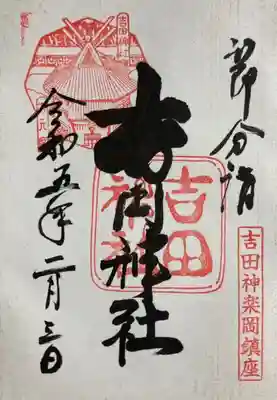 節分詣
吉田神楽岡鎮座
吉田神社
吉田神社
吉田神社
令和五年二月三日